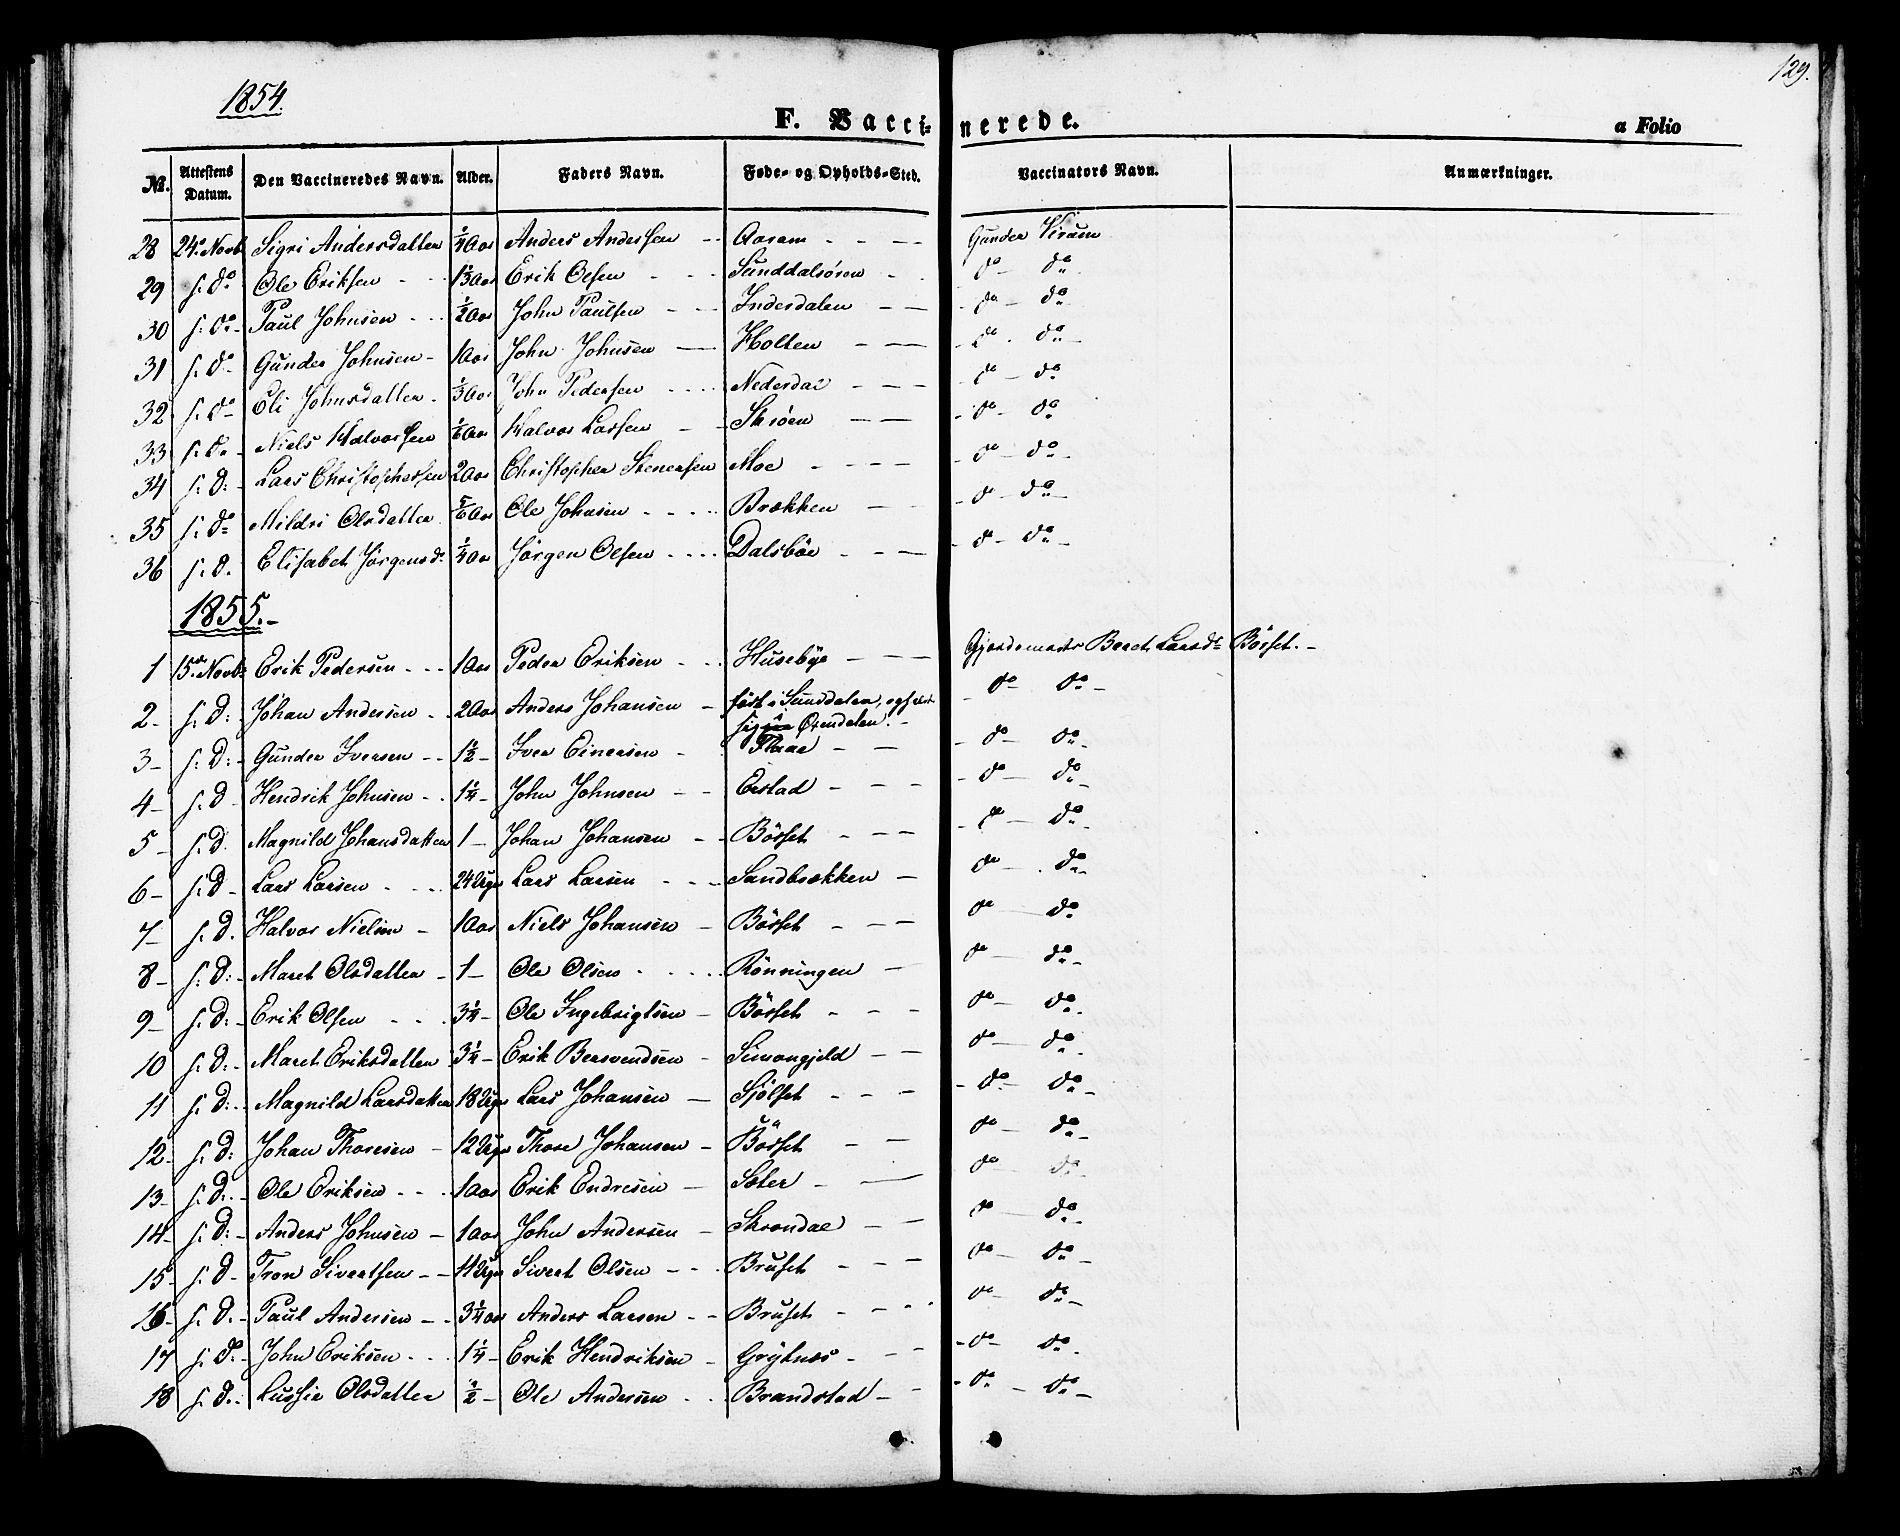 129.
1854.
F. Vaccinerede.
a Folio
No. Attestens Datum. Den Vaccineredes Navn. Alder. Faders Navn. Føde- og Opholds-Sted. Vaccinators Navn. Anmærkninger.
28 24de Novb Sigri Andersdatter 1/4 Aar Anders Andersen - - Aaram - - - Gunder Viram
29 s. do Ole Eriksen - 1 1/3 Aar Erik Olsen - - - Sunddalsøren - do - do
30 s. do - Paul Johnsen - - 1/2 Aar John Paulsen - - Inderdalen - - do - do
31 s. do - Gunder Johnsen - 1 Aar John Johnsen - Holten - - - do - do -
32 s. do Eli Johnsdatter - 1/3 Aar John Pedersen - - - Nederdal - - - do - do
33 s. do - Niels Halvorsen 1/6 Aar Halvor Larsen - - Skrøen - - - do - do
34 s. d: - Lars Christophersen 2 Aar Christopher Stenersen Moe - - - - do - do -
35 s. do Mildri Olsdatter 5/6 Aar Ole Johnsen - - - Brækken - - do - do -
36 s. d. Elisabet Jørgensd. 1/4 Aar Jörgen Olsen - - - Dalsböe - - - - do - do -
1855. -
1 15de Novb: Erik Pedersen - - - 1 Aar Peder Eriksen - - Husebye - - - Gjordemoder Beret Larsdr Börset. -
2 - s. d: Johan Andersen - - 2 Aar Anders Johansen - født i Sunddalen, - do - do -
Örendalen. -
3 - s. d: - Gunder Iversen - - 1 1/2 - Iver Einersen - Flaae - - - do - do -
4 - s. d - Hendrik Johnsen - - 1 1/4 - John Johnsen - - Erstad - - - - do - do -
5 - s. d. Magnild Johansdatter 1 - Johan Johansen - - Börset - - - - do - do -
6 - s. d - Lars Larsen - - - 24 Uger Lars Larsen - - - Sandbrækken - do - do -
7 - s. d. Halvor Nielsen - 1 Aar Niels Johansen - Börset - - - do - do
8 - s. d: - Maret Olsdatter - 1 - Ole Olsen - - - Rönningen - do - do -
9 - s. d: - Erik Olsen - - - 3 1/4 - Ole Ingebrigtsen - Börset - - - do - do
10 s. d: - Maret Eriksdatter 3 1/4 - Erik Bersvendsen - Simongjeld - - do - do
11 s. d: - Magnild Larsdatter 18 Uger Lars Johansen - Sjölset - - - - do - do -
12 - s. d: Johan Thoresen - 12 Uger Thore Johansen - Börset - - do - do -
13 - s. d. - Ole Eriksen - - - 1 Aar Erik Endresen - Sæter - - do - do -
14 - s. d: - Anders Johnsen - 1 Aar John Andersen - Skrondal - - do - do
15 - s. d - Tron Sivertsen - - 11 Uger Sivert Olsen - - - Bruset - - - do - do -
16 - s. d. - Paul Andersen - - 3 1/4 Aar Anders Larsen - - Bruset - - - - do - do -
17 s. d. - John Eriksen - - - 1 1/4 - Erik Hendriksen - Grytnæs - - - - do - do
18 s. d. - Lussie Olsdatter 1/2 - Ole Andersen - - Brandstad - - - do - do -